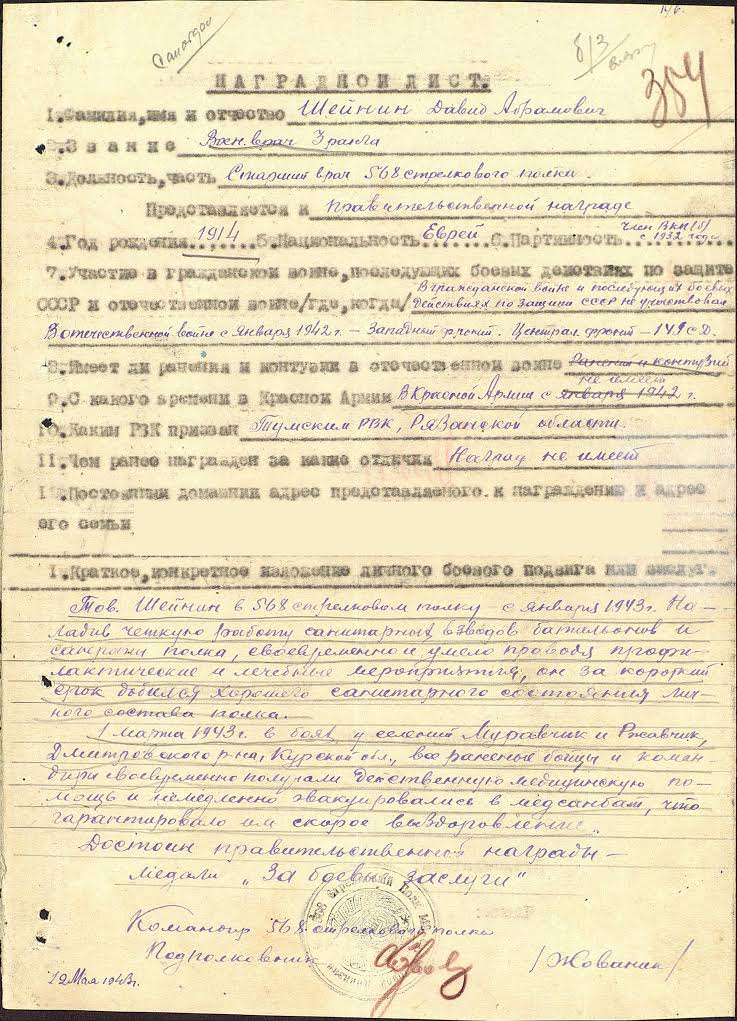 Санотдел
384
НАГРАДНОЙ ЛИСТ.
1.Фамилия,имя и отчество Шейнин Давид Абрамович
2.Звание Воен.врач 3 ранга
3.Должность,часть Старший врач 568 стрелкового полка.
Представляется к правительственной награде
4.Год рождения 1914 5.Национальность Еврей 6.Партийность член ВКП(б) с 1932 года
7.Участие в гражданской войне,последующих боевых действиях по защите
СССР и отечественной войне/где,когда/ В гражданской войне и последующих боевых
действиях по защите СССР не участвовал
В отечественной войне с января 1942 г. – Западный фронт. Централ. фронт – 149 с.д.
8.Имеет ли ранения и контузии в отечественной войне Ранений и контузий
не имеет
9.С какого времени в Красной Армии В Красной Армии с января 1942 г.
10.Каким РВК призван Тумским РВК, Рязанской области.
11.Чем ранее награжден за какие отличия Наград не имеет
12.Постоянный домашний адрес представляемого к награждению и адрес
его семьи
1.Краткое,конкретное изложение личного боевого подвига или заслуг.
Тов. Шейнин в 568 стрелковом полку с января 1943 г. На-
ладив четкую работу санитарных взводов батальонов и
санроты полка, своевременно и умело проводя профи-
лактические и лечебные мероприятия, он за короткий
срок добился хорошего санитарного состояния лич-
ного состава полка.
1 марта 1943 г. в боях у селений Муравчик и Ржавчик,
Дмитровского р-на, Курской обл., все раненые бойцы и коман-
диры своевременно получали действенную медицинскую по-
мощь и немедленно эвакуировались в медсанбат, что
гарантировало им скорое выздоровление.
Достоин правительственной награды –
медали „За боевые заслуги"
Командир 568 стрелкового полка
Подполковник /Жованик/
12 Мая 1943г.